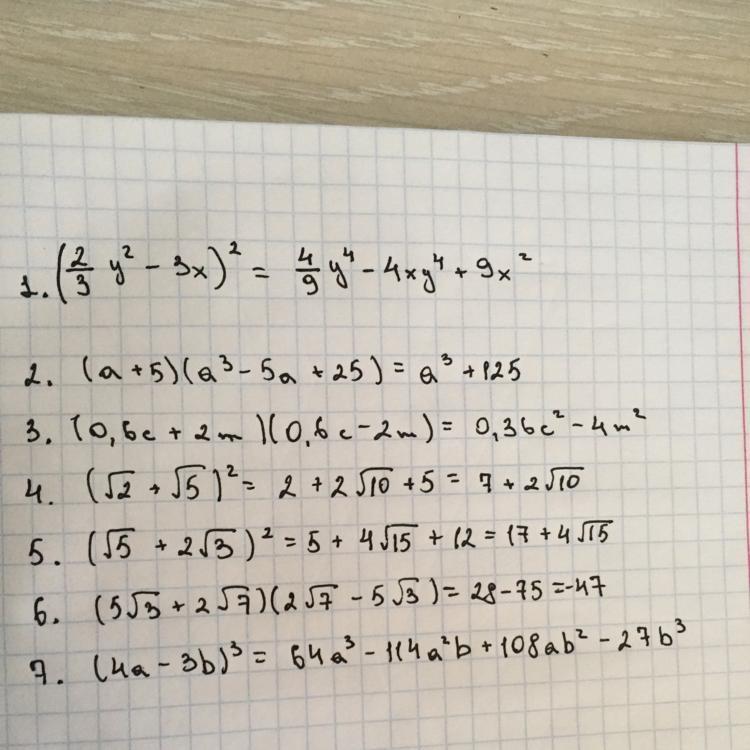 1. (2/3 y² - 3x)² = 4/9 y⁴ - 4xy⁴ + 9x²
2. (a + 5)(a³ - 5a + 25) = a³ + 125
3. (0,6c + 2m)(0,6c - 2m) = 0,36c² - 4m²
4. (√2 + √5)² = 2 + 2√10 + 5 = 7 + 2√10
5. (√5 + 2√3)² = 5 + 4√15 + 12 = 17 + 4√15
6. (5√3 + 2√7)(2√7 - 5√3) = 28 - 75 = -47
7. (4a - 3b)³ = 64a³ - 114a²b + 108ab² - 27b³